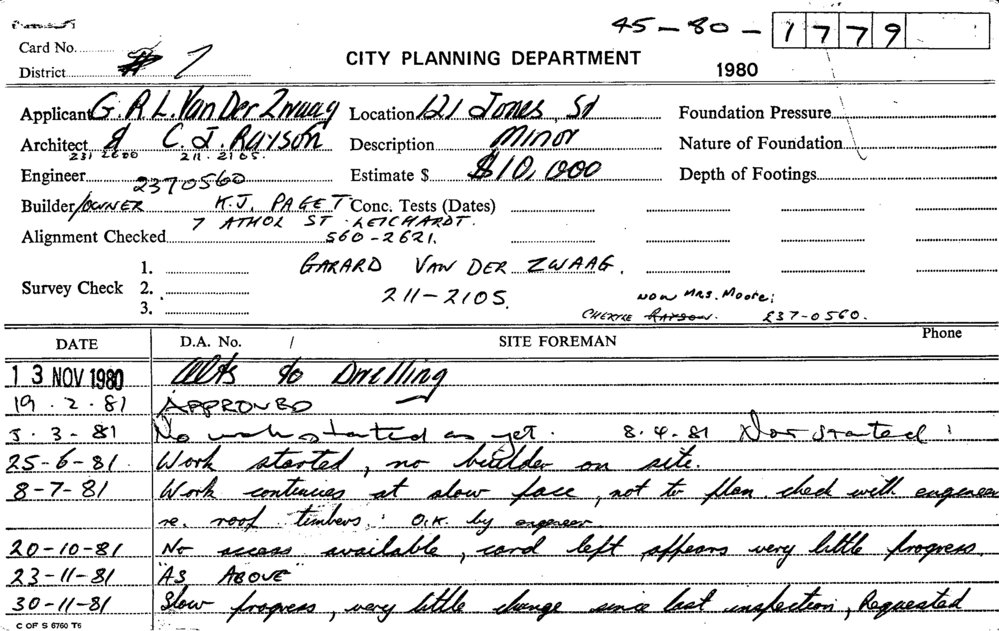 45-80-1779
Card No.
District # 7
CITY PLANNING DEPARTMENT
1980
Applicant G. R L. Van Der Zwaag Location 121 Jones, St Foundation Pressure
Architect & C. J. RAYSON Description Minor Nature of Foundation
231 2600 211.2105.
Engineer 2370560 Estimate $ $10,000 Depth of Footings
Builder/OWNER K.J. PAGET Conc. Tests (Dates)
7 ATHOL ST LEICHARDT.
Alignment Checked 560-2621.
1. GARARD VAN DER ZWAAG.
Survey Check 2. 211-2105. NOW MRS. Moore:
3. CHERYLE RAYSON. 237-0560.
DATE D.A. No. / SITE FOREMAN Phone
13 NOV 1980 Alts to Dwelling
19.2.81 APPROVED
3.3-81 No work started as yet. 8.4.81 Not started!
25-6-81. Work started, no builder on site.
8-7-81 Work continues at slow pace, not to plan. check with engineer
re. roof timbers. O.K. by engineer
20-10-81 No access available, card left appears very little progress
23-11-81 "AS ABOVE"
30-11-81 Slow progress, very little change since last inspection, Requested
C OF S 6760 T6